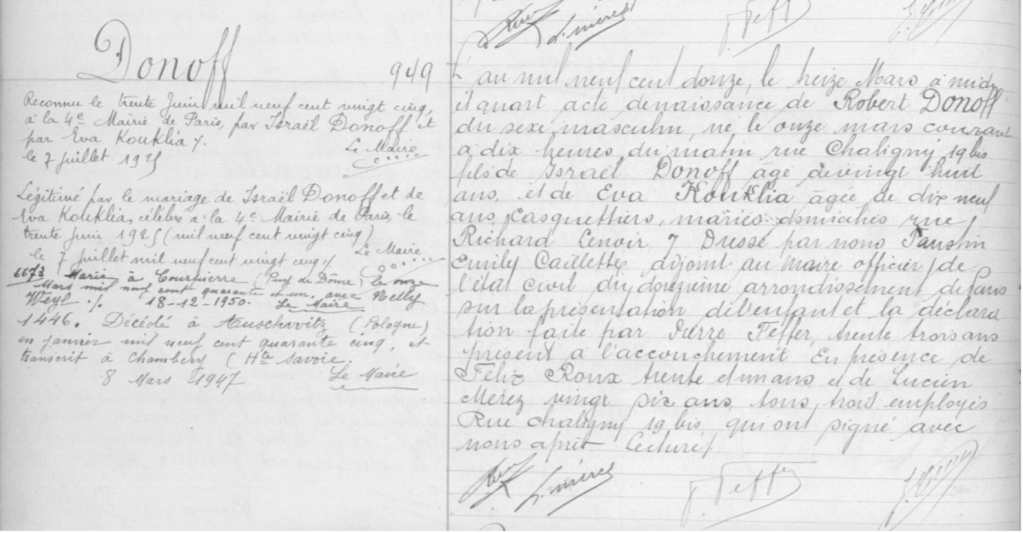 Donoff
949
Reconnu le trente Juin mil neuf cent vingt cinq,
à la 4e Mairie de Paris, par Israël Donoff et
par Eva Kouklia
le 7 juillet 1925 Le Maire
Légitimé par le mariage de Israël Donoff et de
Eva Kouklia, célébré à la 4e Mairie de Paris, le
trente Juin 1925 (mil neuf cent vingt cinq)
le 7 juillet mil neuf cent vingt cinq Le Maire
Marié à Courpierre (Puy de Dôme) le onze
Mars mil neuf cent quarante et un, avec Nelly
Weyl ./. 18-12-1950. Le Maire
1446. Décédé à Auschwitz (Pologne)
en janvier mil neuf cent quarante cinq, et
transcrit à Chambéry (Hte Savoie.
8 Mars 1947 Le Maire
L'an mil neuf cent douze, le treize Mars à midi
et quart acte de naissance de Robert Donoff
du sexe masculin, né le onze mars courant
à dix heures du matin rue Chaligny 19 bis
fils de Israël Donoff âgé de vingt huit
ans, et de Eva Kouklia âgée de dix neuf
ans, casquettiers, mariés domiciliés rue
Richard Lenoir 7 Dressé par nous
Emily Caillette adjoint au maire officier de
l'état civil du douzième arrondissement de Paris
sur la présentation de l'enfant et la déclara
tion faite par Pierre Feffer, trente trois ans
présent à l'accouchement En présence de
Félix Roux trente et un ans et de Lucien
Merez vingt six ans, tous trois employés
Rue Chaligny 19 bis, qui ont signé avec
nous après Lecture